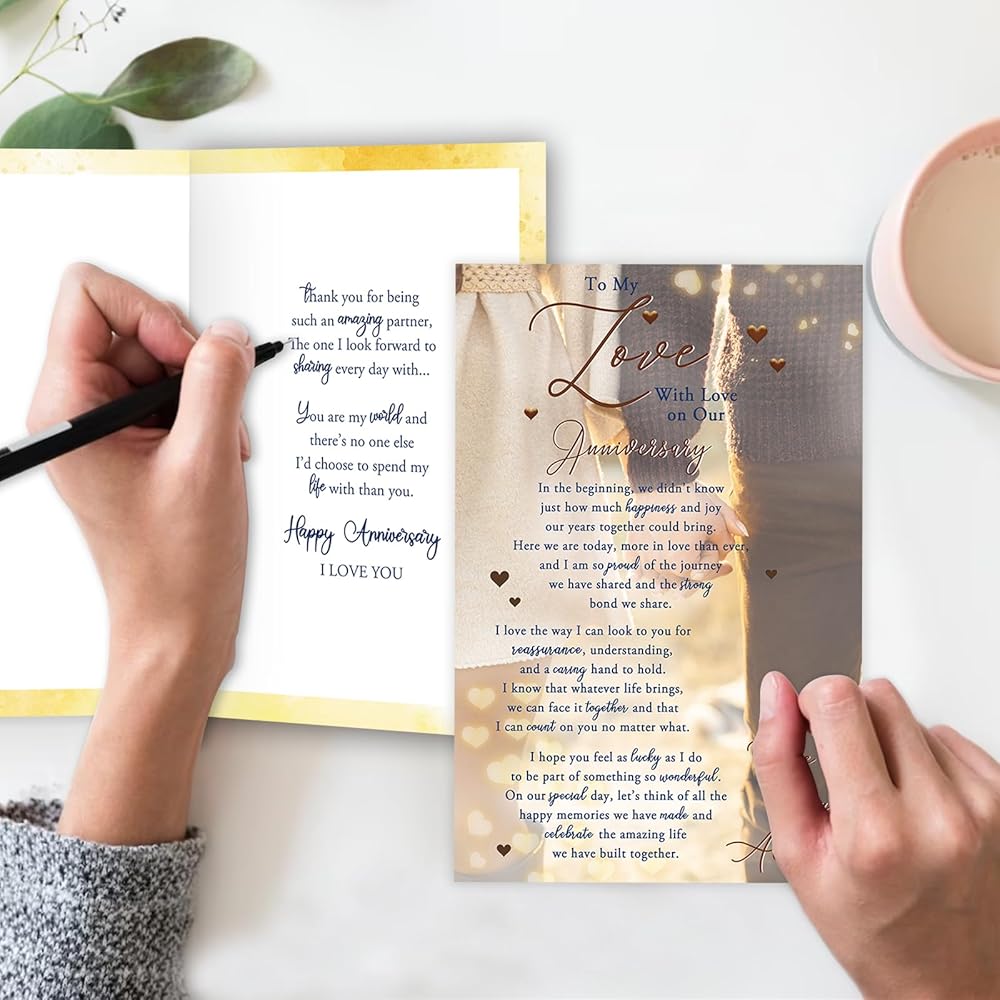 Thank you for being
such an amazing partner,
The one I look forward to
sharing every day with...
You are my world and
there's no one else
I'd choose to spend my
life with than you.
Happy Anniversary
I LOVE YOU
To My
Love
With Love
on Our
Anniversary
In the beginning, we didn't know
just how much happiness and joy
our years together could bring.
Here we are today, more in love than ever,
and I am so proud of the journey
we have shared and the strong
bond we share.
I love the way I can look to you for
reassurance, understanding,
and a caring hand to hold.
I know that whatever life brings,
we can face it together and that
I can count on you no matter what.
I hope you feel as lucky as I do
to be part of something so wonderful.
On our special day, let's think of all the
happy memories we have made and
celebrate the amazing life
we have built together.